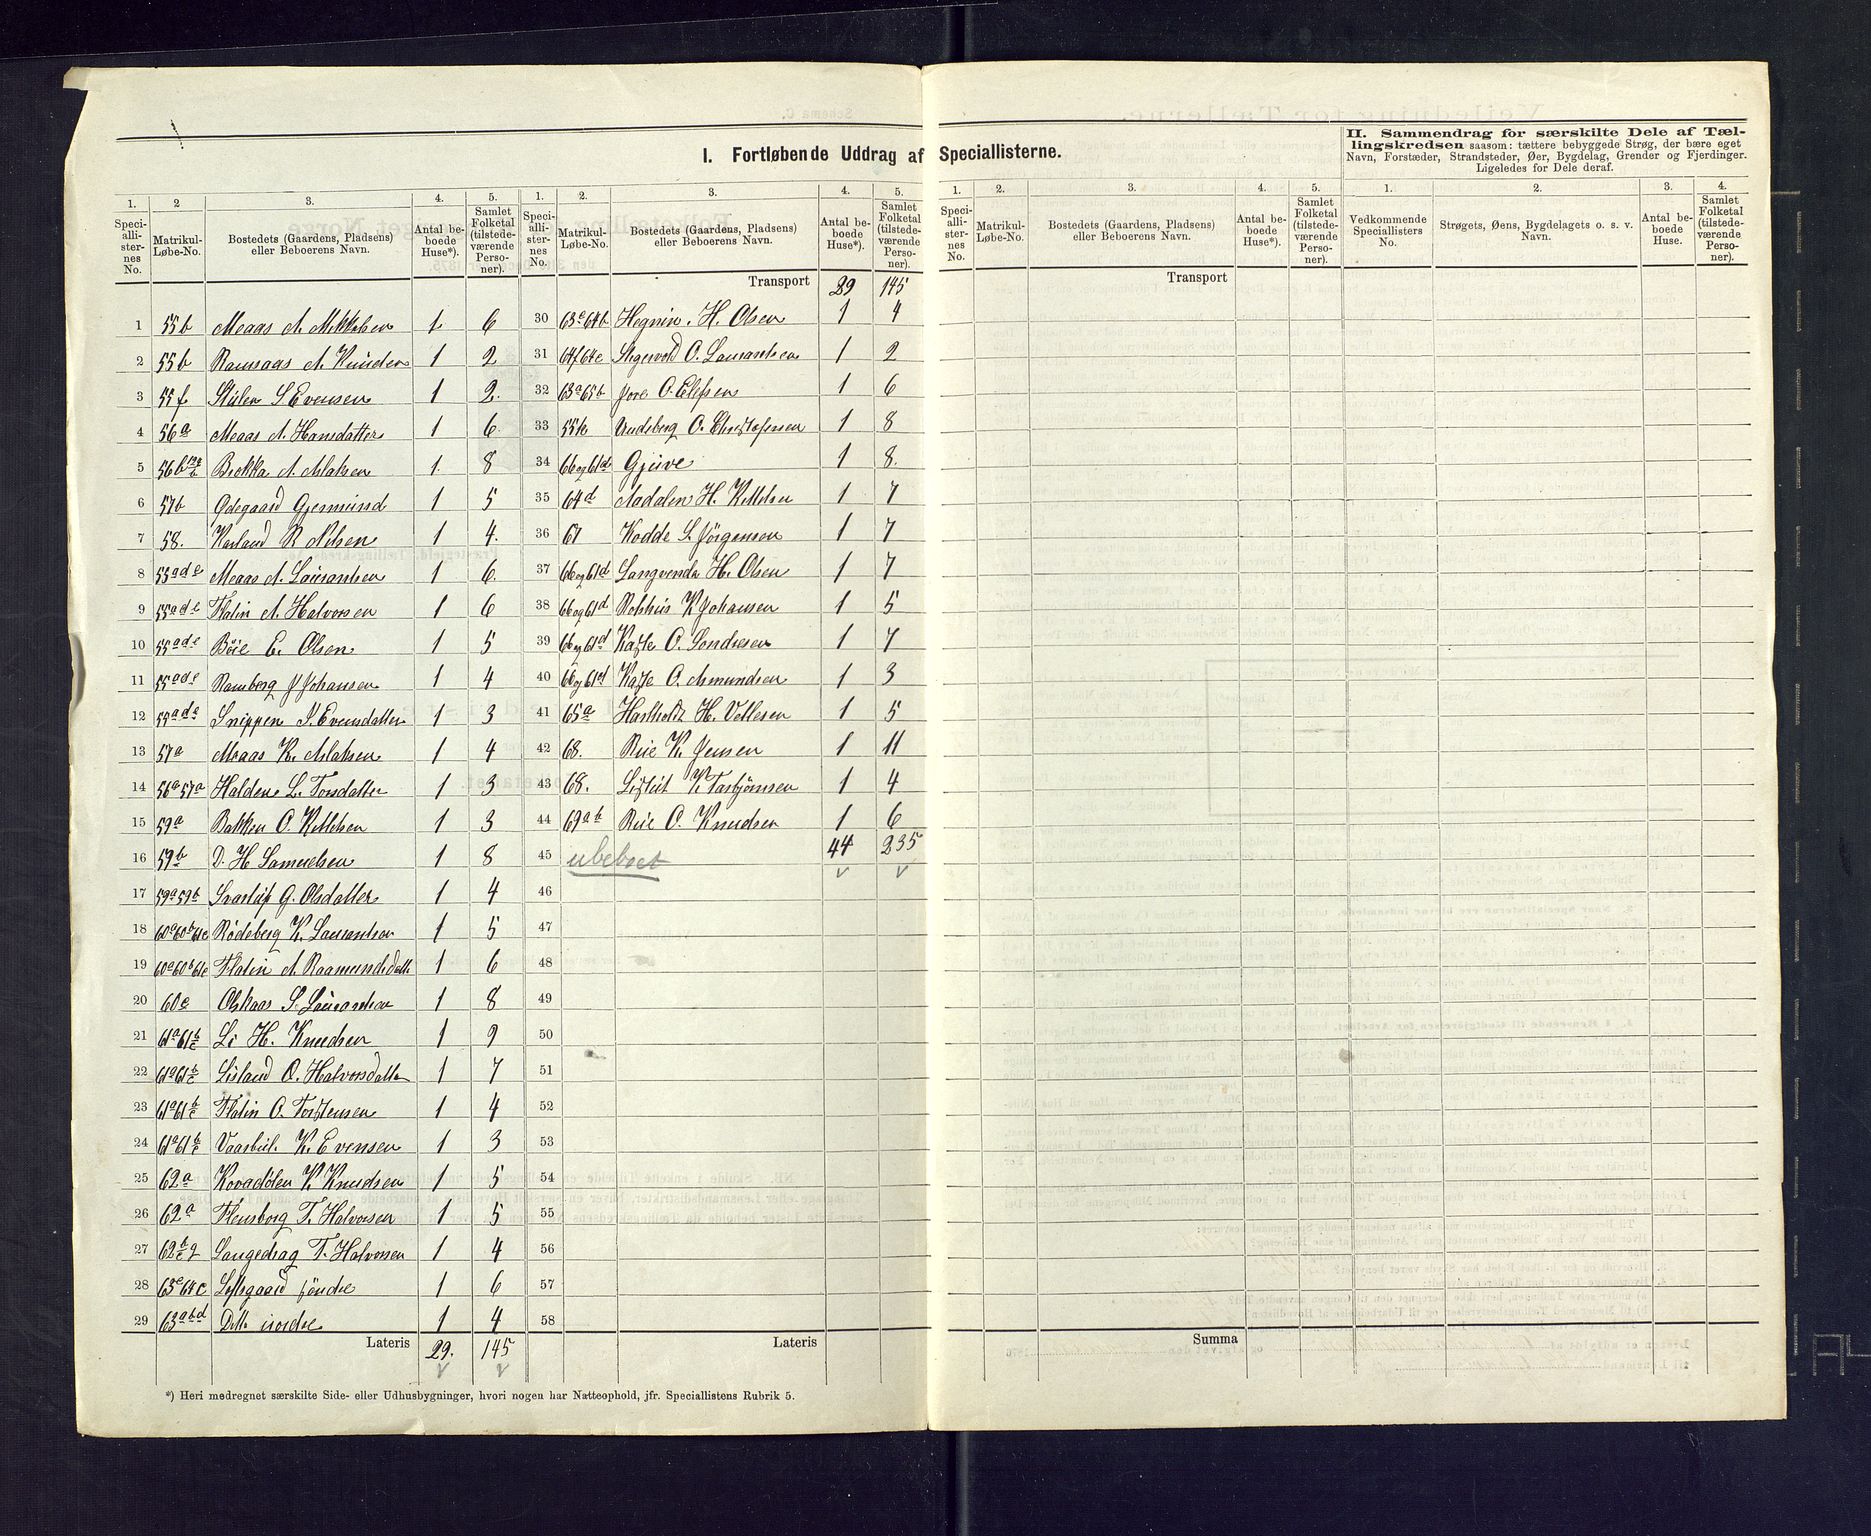 I. Fortløbende Uddrag af Speciallisterne.
II. Sammendrag for særskilte Dele af Tællingskredsen saasom: tættere bebyggede Strøg, der bære eget Navn, Forstæder, Strandsteder, Øer, Bygdelag, Grender og Fjerdinger. Ligeledes for Dele deraf.
1. 2 3. 4. 5. 1. 2. 3. 4. 5. 1. 2. 3. 4. 5. 1. 2. 3. 4.
Speciallisternes No. Matrikul-Løbe-No. Bostedets (Gaardens, Pladsens) eller Beboerens Navn. Antal beboede Huse*). Samlet Folketal (tilstedeværende Personer).
Speciallisternes No. Matrikul-Løbe-No. Bostedets (Gaardens, Pladsens) eller Beboerens Navn. Antal beboede Huse*). Samlet Folketal (tilstedeværende Personer).
Speciallisternes No. Matrikul-Løbe-No. Bostedets (Gaardens, Pladsens) eller Beboerens Navn. Antal beboede Huse*). Samlet Folketal (tilstedeværende Personer).
Vedkommende Speciallisters No. Strøgets, Øens, Bygdelagets o. s. v. Navn. Antal beboede Huse. Samlet Folketal (tilstedeværende Personer).
1 55b Meaas A. Mikkelsen 1 6
2 55b Ramsaas A. Knudsen 1 2
3 55f Stulen S. Evensen 1 2.
4 56a Meaas A. Hansdatter 1 6
5 56b Brokka A. Aslaksen 1 8
6 57b Ødegaard Gjermund 1 5
7 58. Karland R Nilsen 1 4.
8 53ade Meaas A. Laurantsen 1 6.
9 55ade Flatin A. Halvorsen 1 6
10 55ade Böie E. Olsen 1 5
11 55ade Ramberg J Johansen 1 4
12 55ade Snippen Evensdatter 1 3
13 57a Meaas K. Aslaksen 1 4
14 56a57a Halden L. Torsdatter 1 3
15 59a Bakken O. Kittelsen 1 3
16 59b D. H Samuelsen 1 8
17 59a59b G. Olsdatter 1 4
18 60a60b61c Rödeberg K. Laurantsen 1 5
19 60a60b61c Flatin A. Raamundsdatt 1 6
20 60c S. Laurantsen 1 8
21 61a61b/c Li H. Knudsen 1 9
22 61a61b/c Lisland O. Halvorsdatter 1 7
23 61a61b/c Flatin O. Torstensen 1 4
24 61a61b/c K. Evensen 1 3
25 62a Kovadölen K Knudsen 1 5
26 62a Flensborg T. Halvorsen 1 5
27 62 Langedrag T. Halvorsen 1 4
28 63c64c Loftsgaard söndre 1 6
29 63abd Dtto nordre 1 4
Lateris 29. 145
Transport 29 145
30 63c64b Hegnin. H. Olsen 1 4
31 64f64e O. Laurantsen 1 2
32 63a65b Jore O. Elefsen 1 6
33 55h O. Christofersen 1 8
34 66og61d Gjuve 1 8.
35 64d Aadalen H. Kittelsen 1 7
36 67 Kodde S. Jörgensen 1 7
37 66og61d Langvenda H. Olsen 1 7
38 66og61d K Johansen 1 5
39 66og61d O. Sondresen 1 7
40 66og61d O. Amundsen 1 3
41 65a H. Vetlesen 1 5
42 68. Rue K. Jensen 1 11
43 68. K. Tarbjörnsen 1 4
44 69ab Rue O. Knudsen 1 6
44 235
45 ubeboet
46
47
48
49
50
51
52
53
54
55
56
57
58
Lateris
Transport
Summa
*) Heri medregnet særskilte Side- eller Udhusbygninger, hvori nogen har Natteophold, jfr. Speciallistens Rubrik 5.